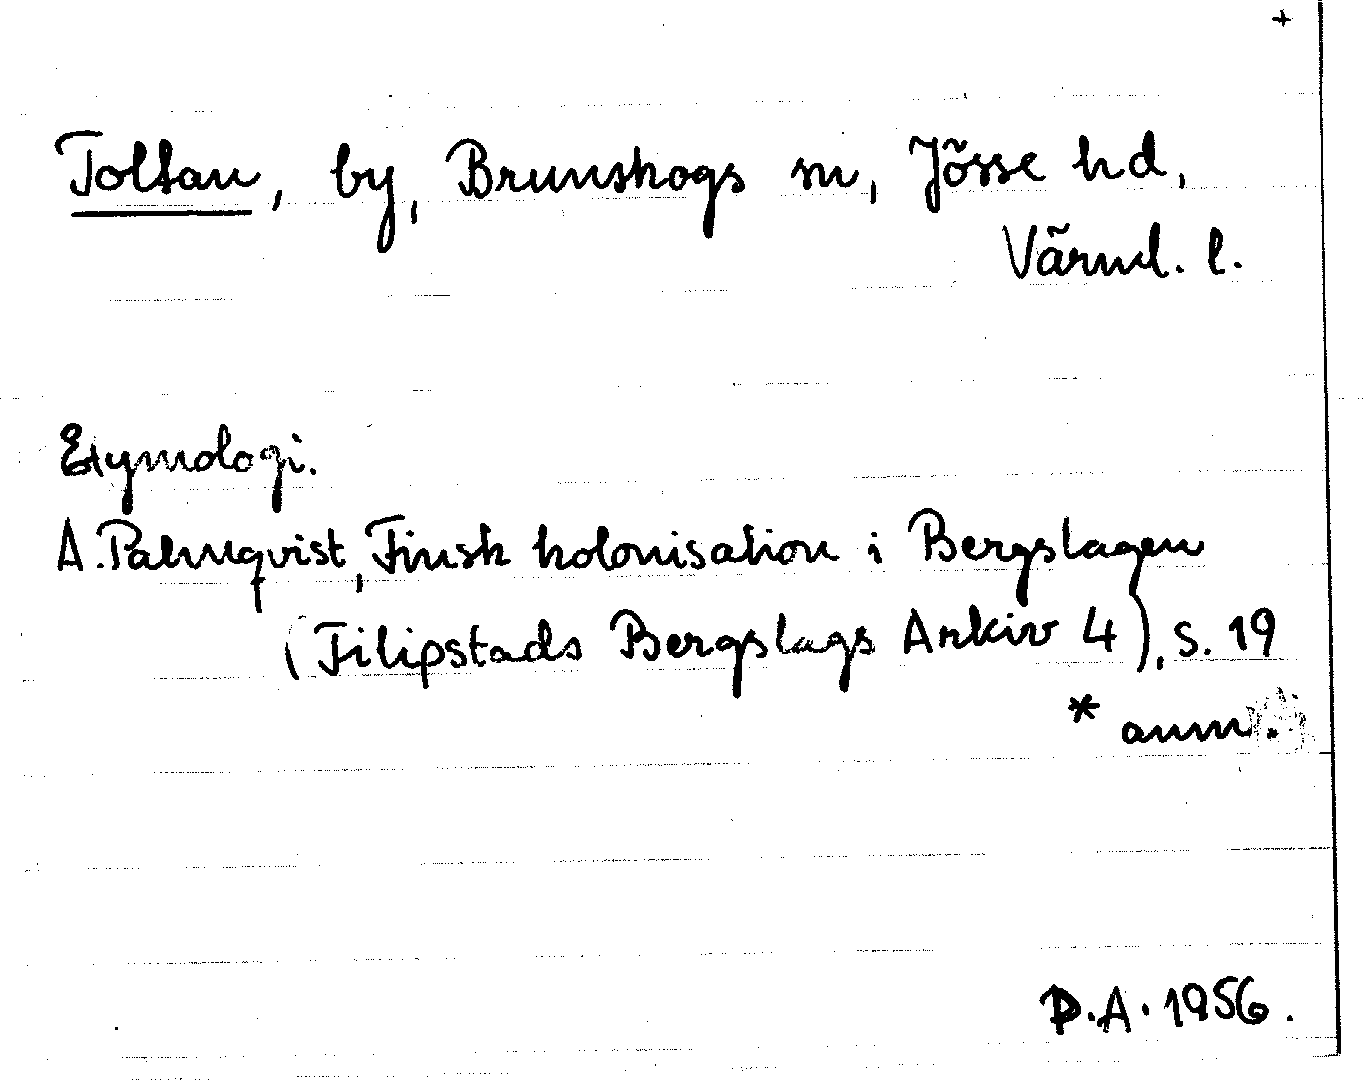 +
Toltan, by, Brunskogs sn, Jösse hd,
Värml. l.
Etymologi.
A. Palmqvist, Finsk kolonisation i Bergslagen
(Filipstads Bergslags Arkiv 4), s. 19
* anm.
D.A. 1956.